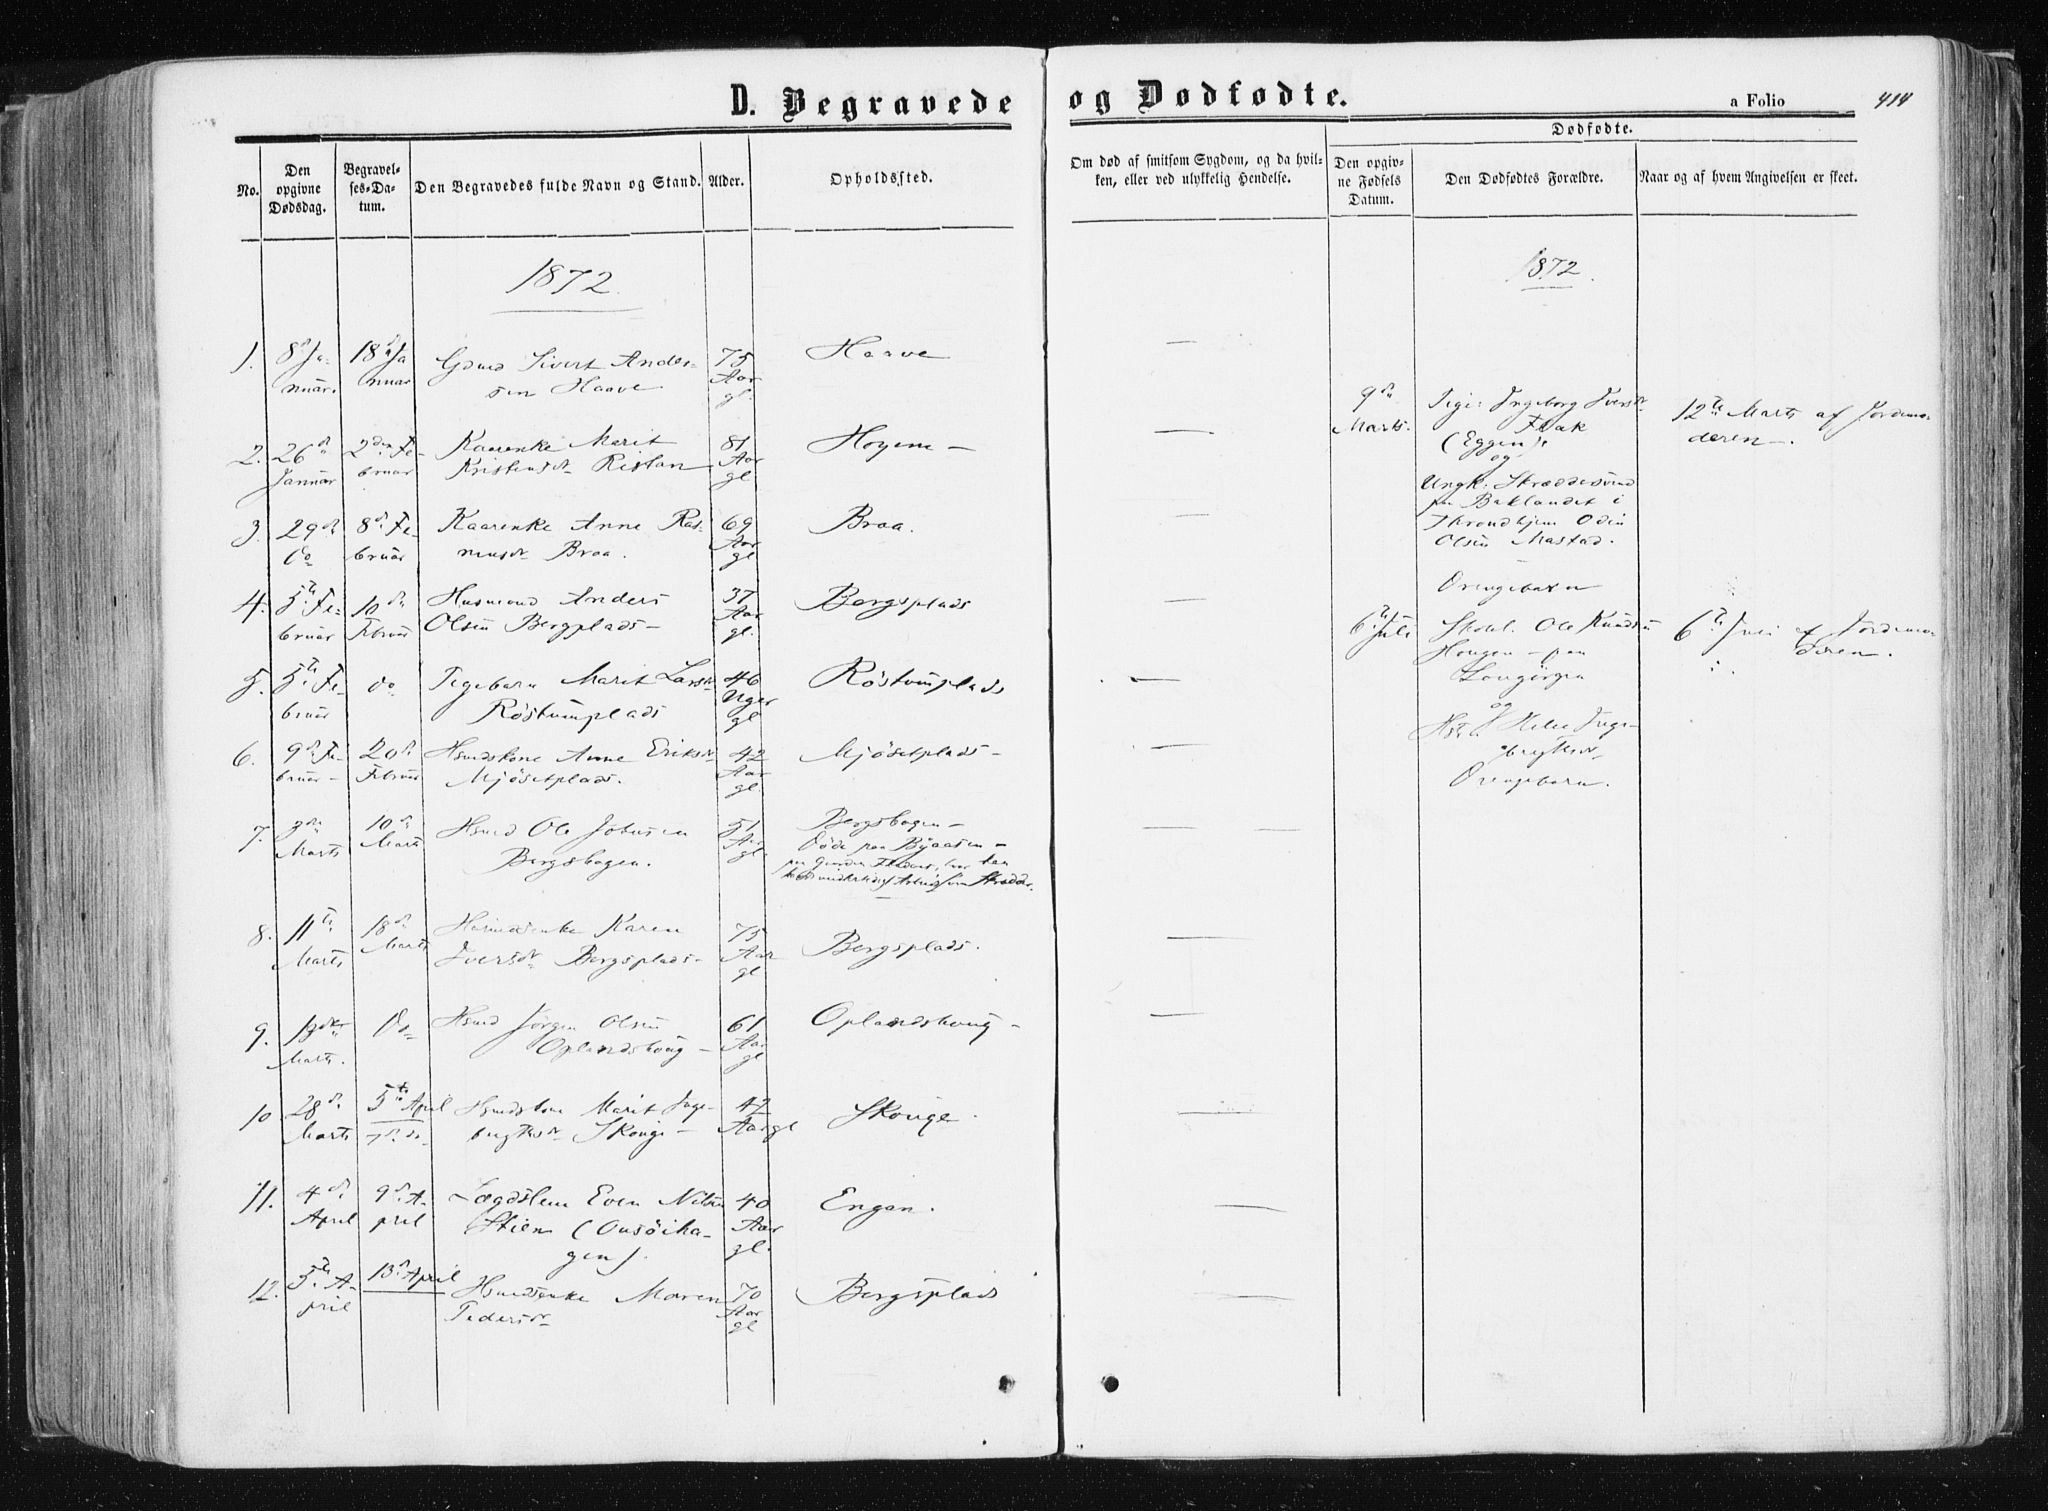 D. Begravede og Dødfødte.
a Folio 414
No.
Den opgivne Dødsdag.
Begravelses-Datum.
Den Begravedes fulde Navn og Stand.
Alder.
Opholdssted.
Om død af smitsom Sygdom, og da hvilken, eller ved ulykkelig Hendelse.
Dødfødte.
Den opgivne Fødsels Datum.
Den Dødfødtes Forældre.
Naar og af hvem Angivelsen er skeet.
1872.
1. 8de Januar. 18de Januar Gdmd Sivert Andersen Haave 75 Aar gl. Haave —
2. 26de Januar 2den Februar Kaarenke Marit Kristensdr Ristan 81 Aar gl Hoyem — —
3. 29de do 8de Februar Kaarenke Anne Rasmusdr Braa. 69 Aar gl Braa. —
4. 5te Februar 10de Februar Husmand Anders Olsen Bergsplads — 37 Aar gl. Bergsplads —
5. 5te Februar do Pigebarn Marit Larsdr Röstumplads 46 Uger gl Röstumplads —
6. 9de Februar — 20de Februar Hsmdskone Anne Eriksdr Mjösetplads. 42 Aar gl. Mjösetplads — —
7. 3de Marts 10de Marts Hsmd Ole Johnsen Bergshagen. 51 Aar gl. Bergshagen —
döde paa Byaasen —
— —
8. 11te Marts 18de Marts Hsmdsenke Karen Iversdr Bergsplads — 75 Aar gl Bergsplads. —
9. Marts. Do Hsmd Jörgen Olsen Oplandshoug — 61 Aar gl Oplandshoug — —
10 28de Marts 5te April 7de do Hsmdskone Marit Ingebrigtsdr Skouge — 42 Aar gl Skouge. —
11. 4de April 9de April Lægdslem Even Nilsen Stien (Onsöihagen). 40 Aar gl. Engan. —
12. 5te April 13de April Hsmdsenke Maren Pedersdr 70 Aar gl Bergsplads —
1872.
9de Marts. Pige: Ingeborg Iversdr Flak
(Eggen).
og
Ungk: Skræddersvend
paa Baklandet i
Throndhjem Odin
Olsen Mastad.
Drengebarn
12te Marts af Jordemoderen —.
6te Juli Skohl. Ole Knudsen
Hougen — paa
og
Ingebrigtsdr
Drengebarn.
6te Juli af Jordemoderen.